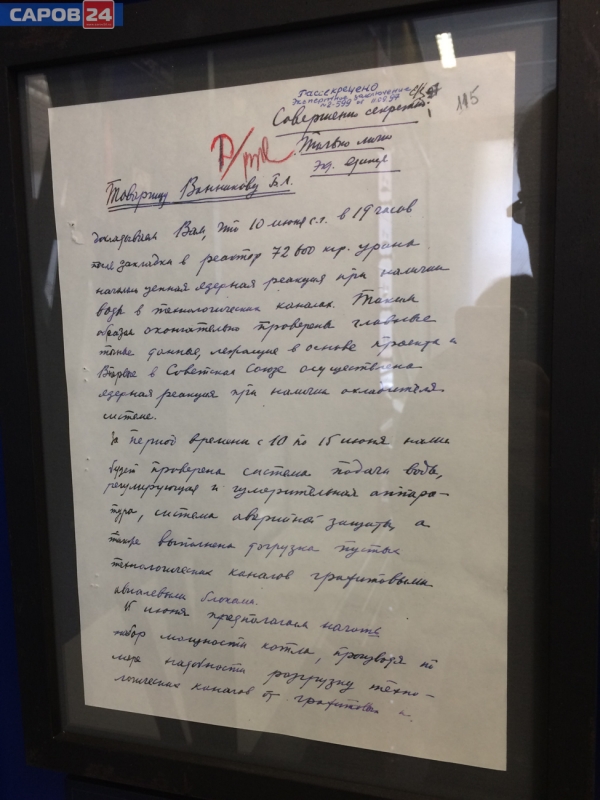 САРОВ 24
Рассекречено
Экспертное заключение
115
Совершенно секретно
Только лично
Экз. единств.
Товарищу Ванникову Б.Л.
Докладываем Вам, что 10 июня с.г. в 19 часов
после закладки в реактор 72 600 кгр. урана
началась цепная ядерная реакция при наличии
воды в технологических каналах. Таким
образом окончательно проверены главные
данные, лежащие в основе проекта и
впервые в Советском Союзе осуществлена
ядерная реакция при наличии охладителя
системе.
За период времени с 10 по 15 июня нами
будет проверена система подачи воды,
регулирующая и измерительная аппара-
тура, система аварийной защиты, а
также выполнена догрузка пустых
технологических каналов графитовыми
авиалевыми блоками.
15 июня предполагаем начать
набор мощности котла, производя по
мере надобности разгрузку техно-
логических каналов от графитовых и